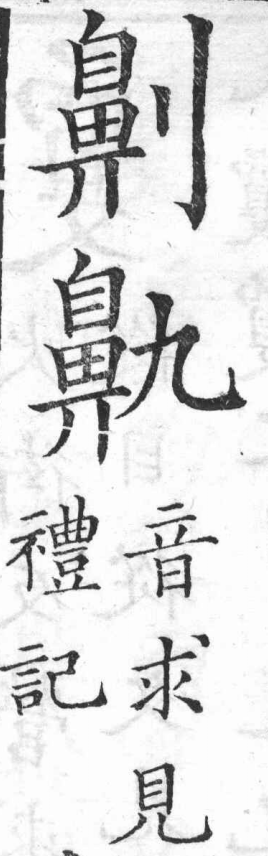 劓鼽
音求見
禮記